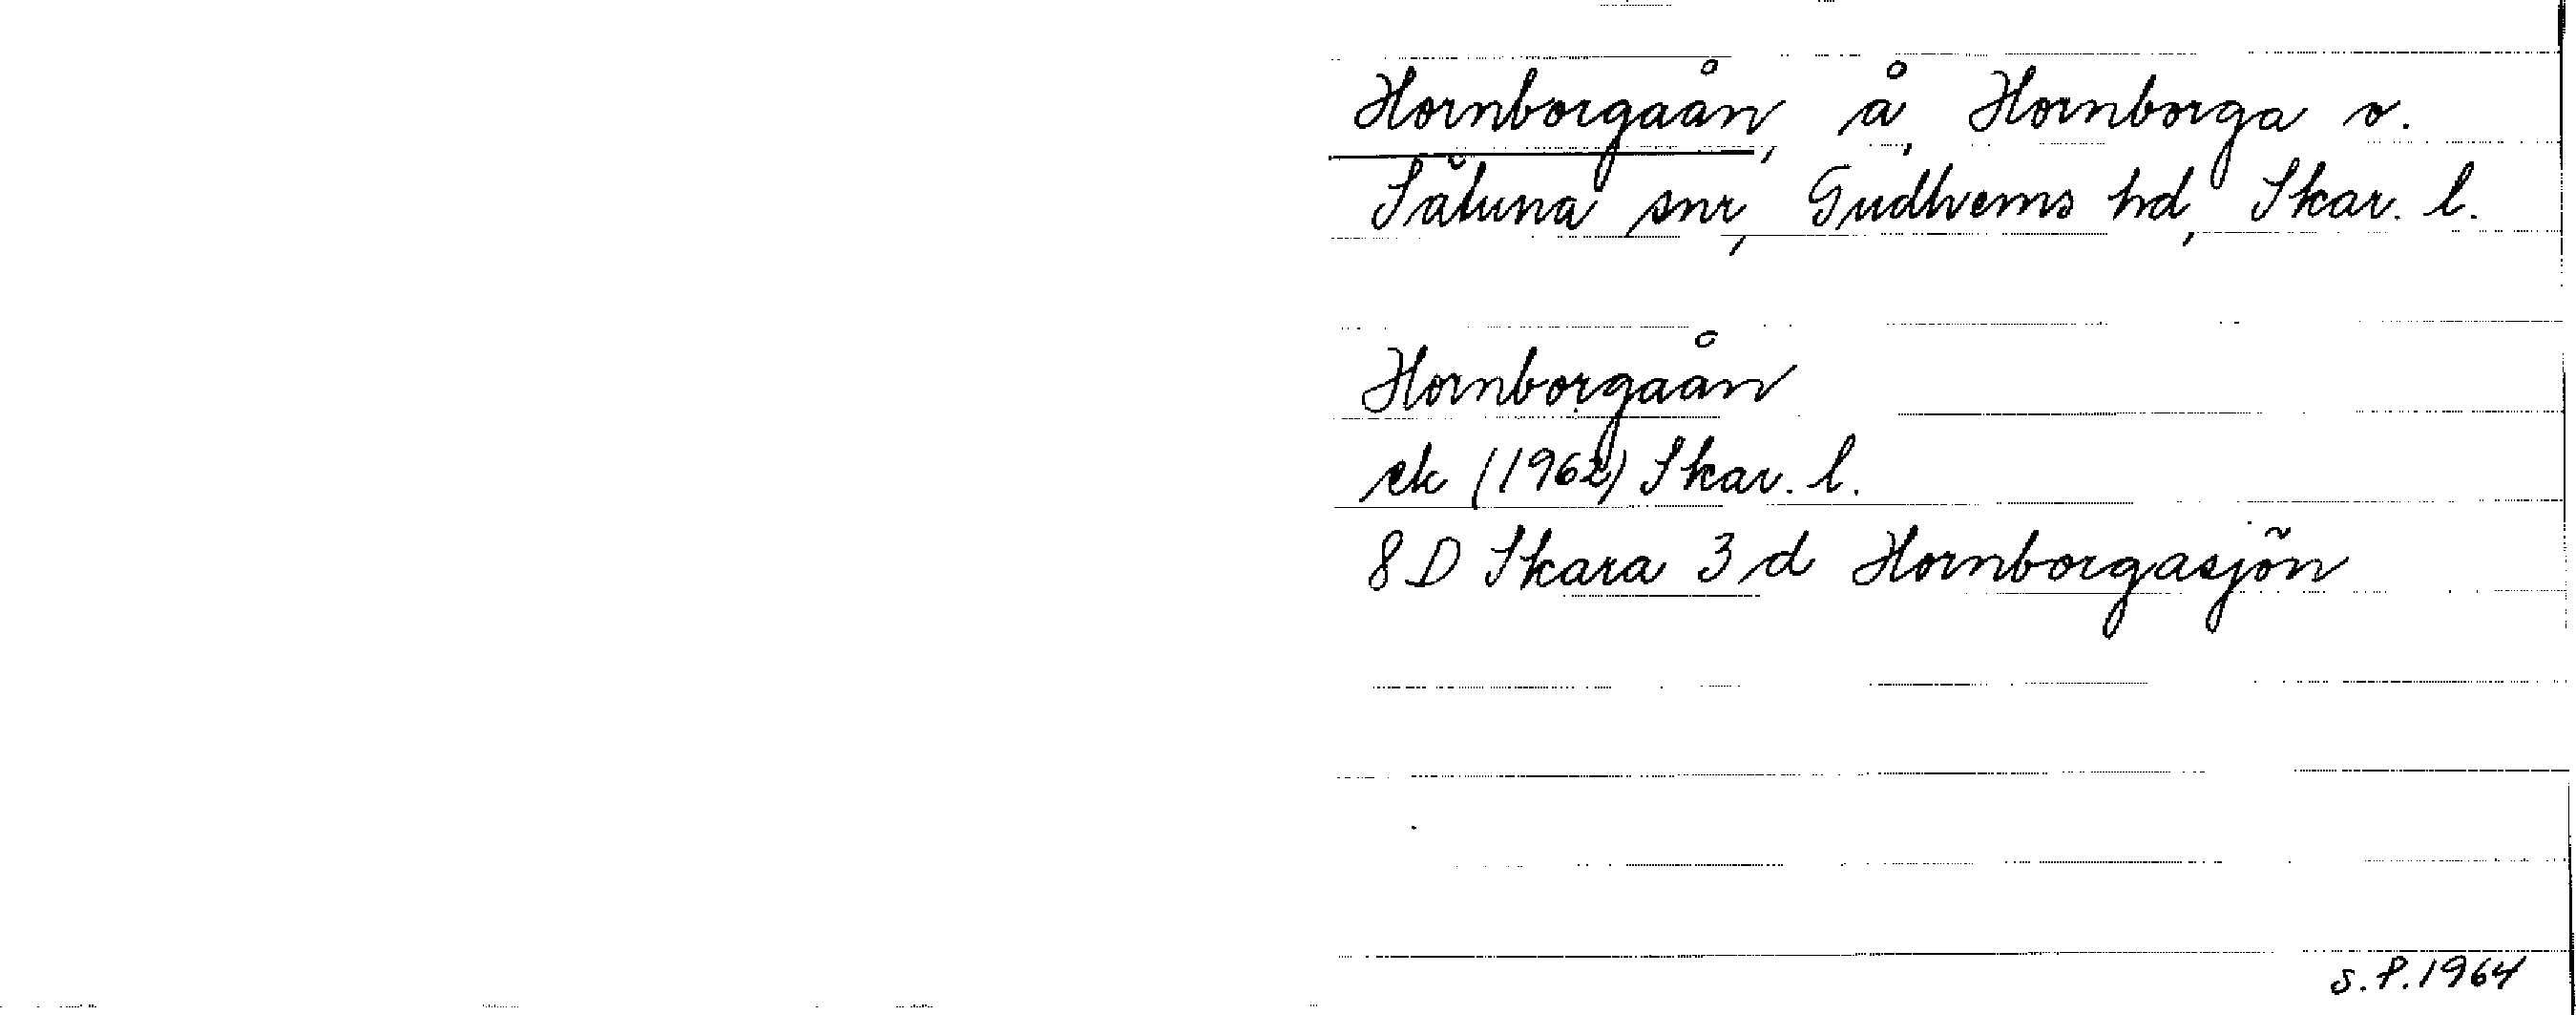 Hornborgaån, å, Hornborga o.
Sätuna snr, Gudhems hd, Skar. l.
Hornborgaån
ek (1962) Skar. l.
8 D Skara 3 d Hornborgasjön
S.P. 1964